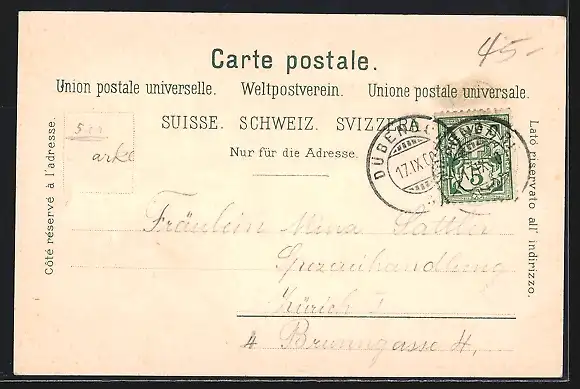 45.-
Carte postale.
Union postale universelle. Weltpostverein. Unione postale universale.
SUISSE. SCHWEIZ. SVIZZERA.
Nur für die Adresse.
Côté réservé à l'adresse.
Lato riservato all' indirizzo.
17.IX.
5
Fräulein Mina
Spezereihandlung
Zürich I
4 Brunngasse 4,